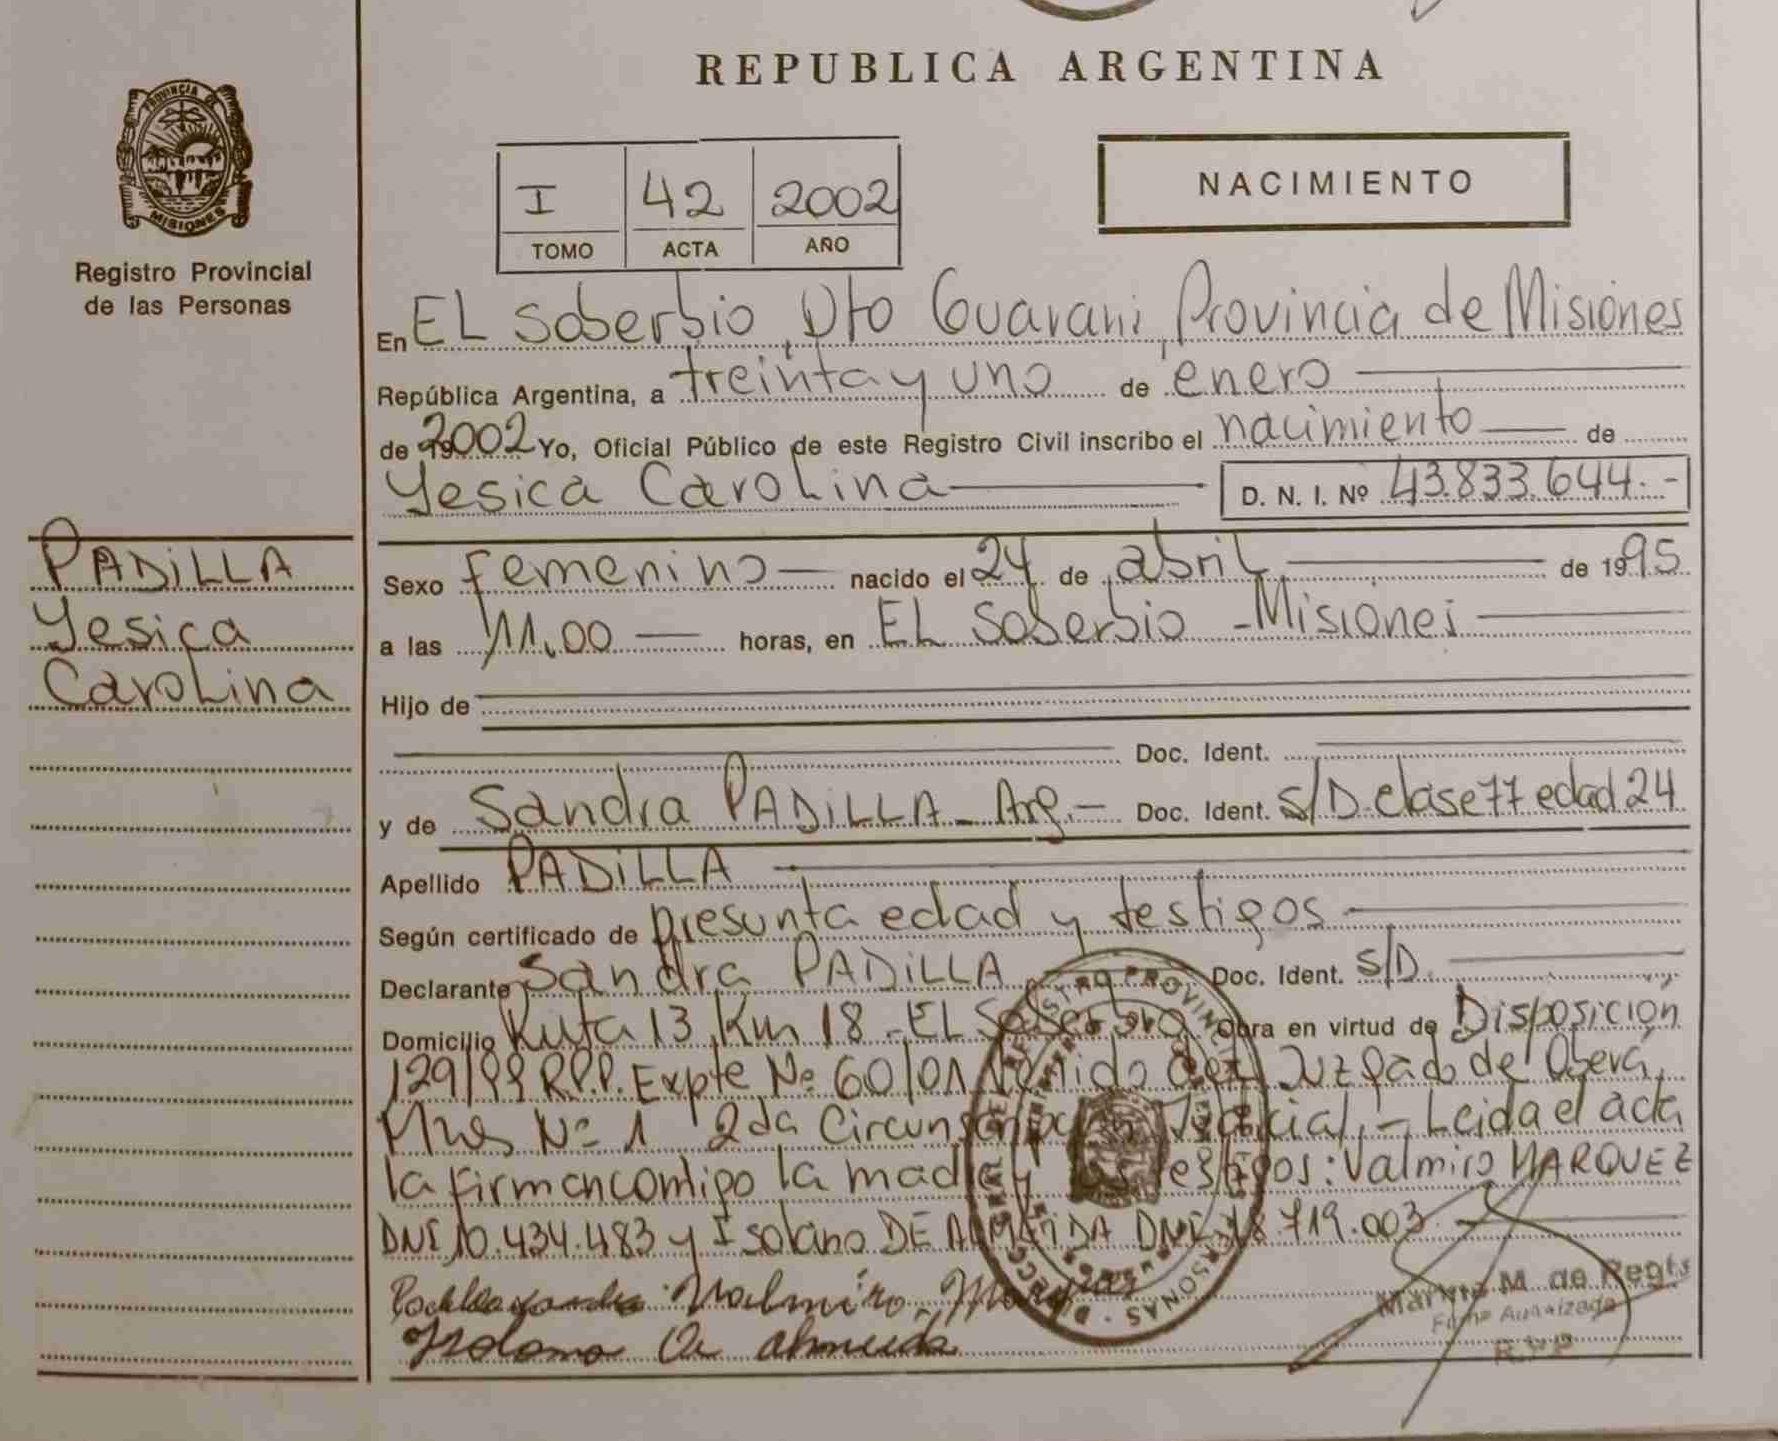 REPUBLICA ARGENTINA
PROVINCIA DE
MISIONES
Registro Provincial
de las Personas
I 42 2002
TOMO ACTA AÑO
NACIMIENTO
En EL Soberbio, Dto Guarani, Provincia de Misiones
República Argentina, a treinta y uno de enero
de 2002 Yo, Oficial Público de este Registro Civil inscribo el nacimiento de
Yesica Carolina D. N. I. Nº 43.833.644.-
PADiLLA
Yesica
Carolina
Sexo femenino nacido el 24 de abril de 1995
a las 11,00 horas, en EL Soberbio - Misiones
Hijo de
Doc. Ident.
y de Sandra PADiLLA - Arg.- Doc. Ident. S/D. clase 77 edad 24
Apellido PADiLLA
Según certificado de presunta edad y testigos
Declarante Sandra PADiLLA Doc. Ident. S/D.
Domicilio Ruta 13 Km 18 - EL Soberbio Obra en virtud de Disposición
129/99 R.P.P. Expte Nº 60/01 Venido del Juzgado de Oberá,
Mnes Nº 1 2da Circunscripción Judicial.- Leida el acta
la firman contigo la madre y los testigos: Valmiro MARQUEZ
DNI 10.434.483 y Isolano DE ALMEIDA DNI 18.719.003.
Valmiro Marquez
Isolano De Almeida
REGISTRO PROVINCIAL DE LAS PERSONAS
M. de Regis
Firma Autorizada
R.P.P